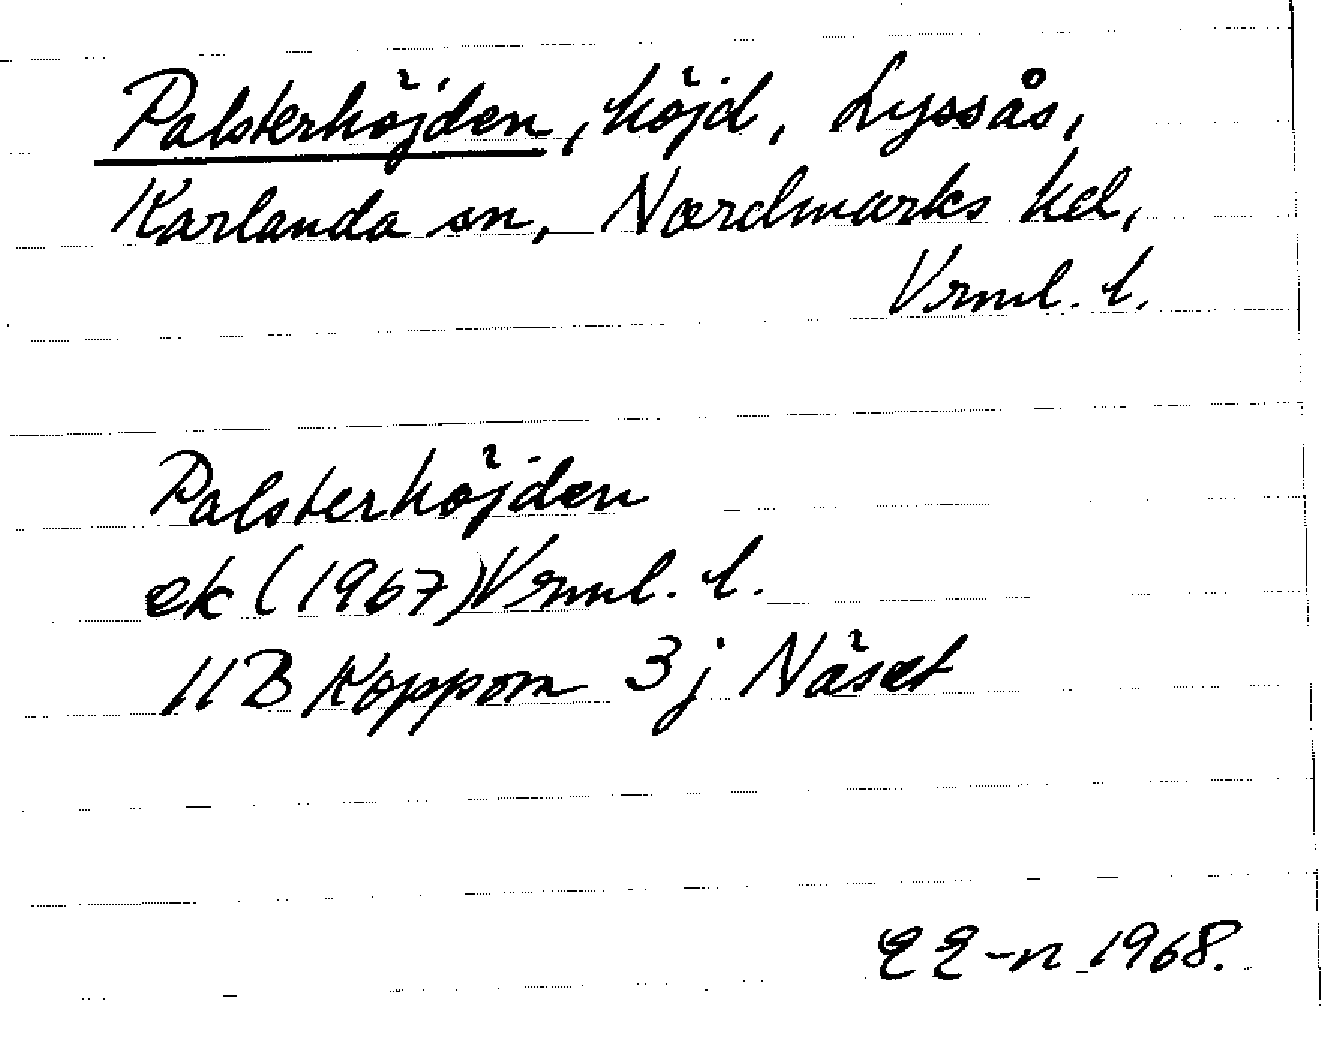 Palsterhöjden, höjd, Lyssås,
Karlanda sn, Nordmarks hd,
Vrml. l.
Palsterhöjden
ek (1967) Vrml. l.
11B Koppom 3j Näset
EE-n 1968.